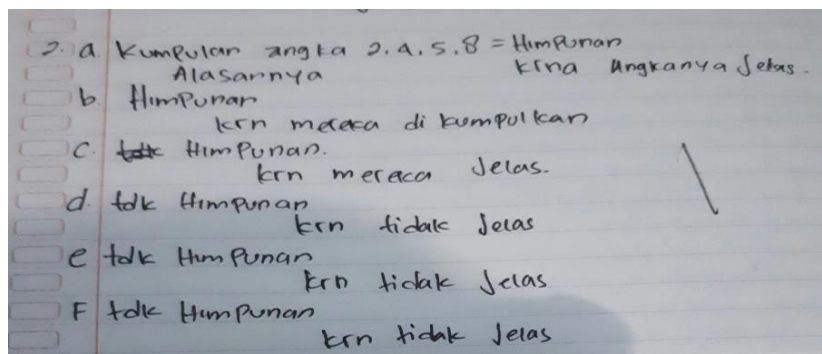 2. a. Kumpulan angka 2.4.5.8 = Himpunan
Alasannya krna angkanya Jelas.
b. Himpunan
krn mereca di kumpulkan
c. Himpunan.
krn mereca Jelas.
d. tdk Himpunan
krn tidak Jelas
e tdk Himpunan
krn tidak Jelas
F tdk Himpunan
krn tidak Jelas